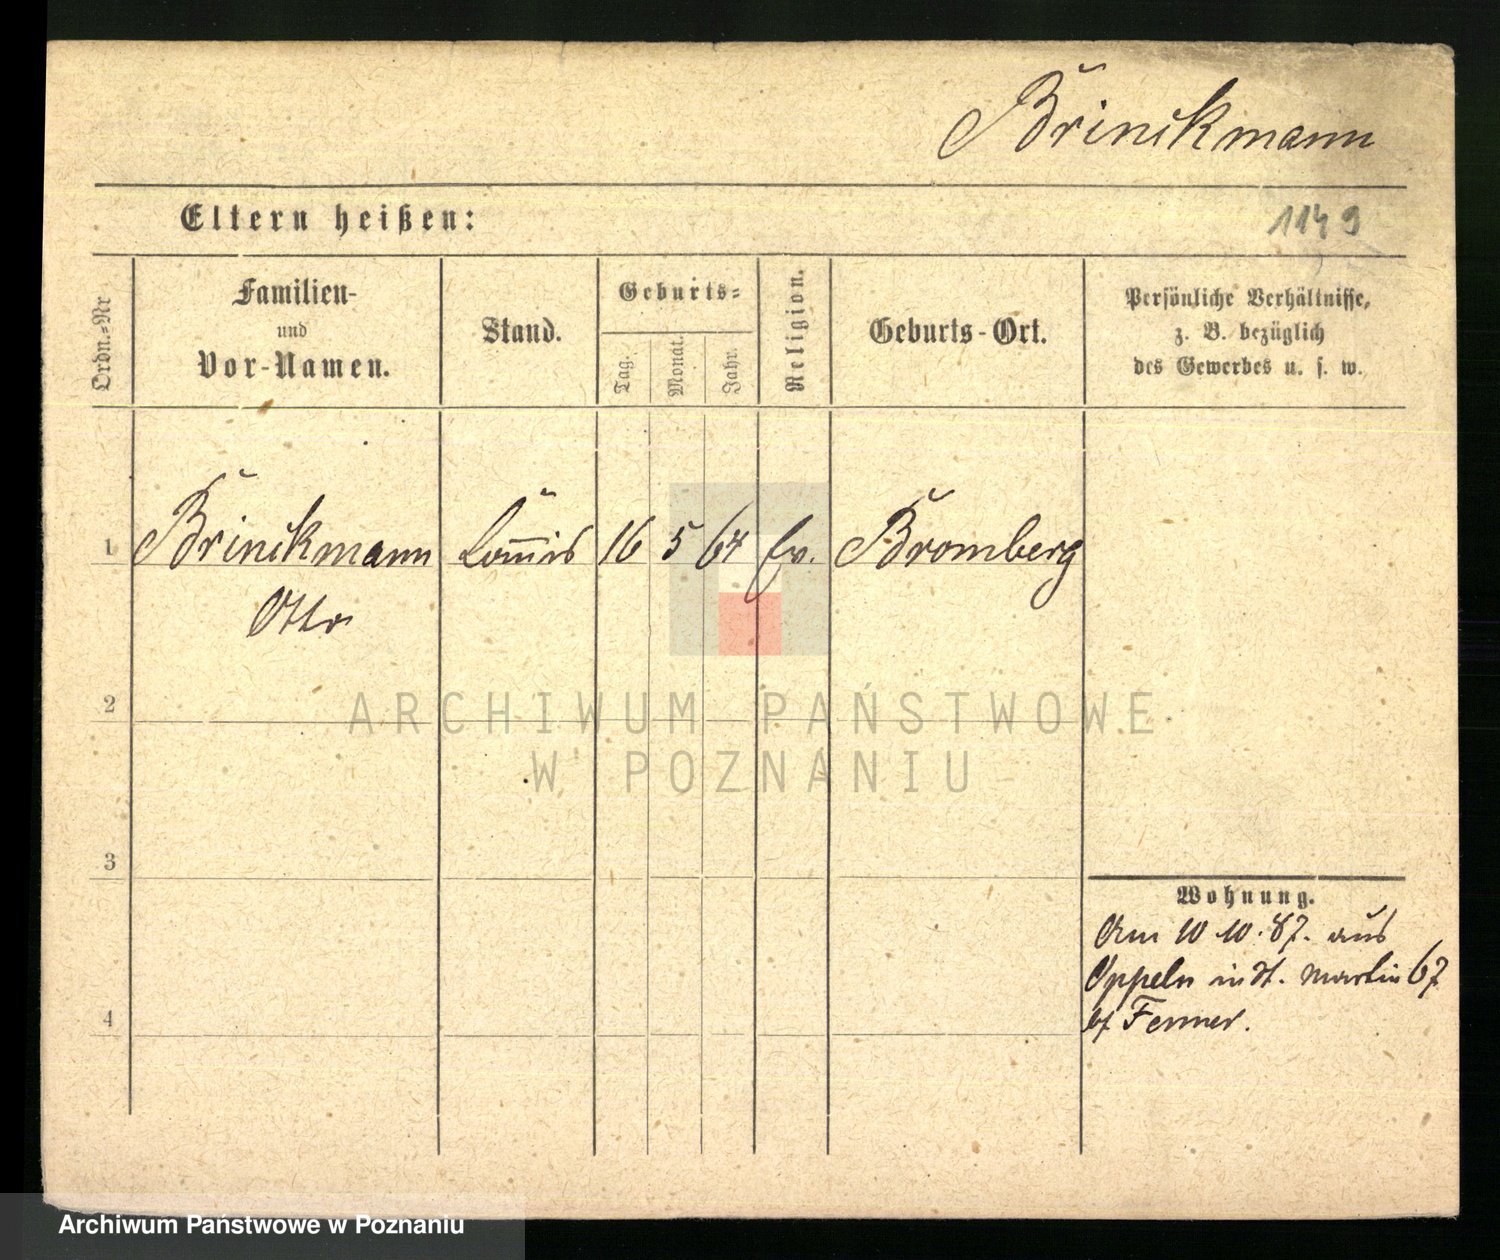 Brinckmann
Eltern heißen:
1149
Ordn.-Nr
Familien-
und
Vor-Namen.
Stand.
Geburts-
Tag.
Monat.
Jahr.
Religion.
Geburts-Ort.
Persönliche Verhältnisse,
z. B. bezüglich
des Gewerbes u. s. w.
1
Brinckmann
Otto
Com̅is
16
5
64
Ev.
Bromberg
2
3
4
Wohnung.
Am 10 10. 87. aus
Oppeln in St. Martin 67
b/ Fenner.
ARCHIWUM PAŃSTWOWE
W POZNANIU
Archiwum Państwowe w Poznaniu